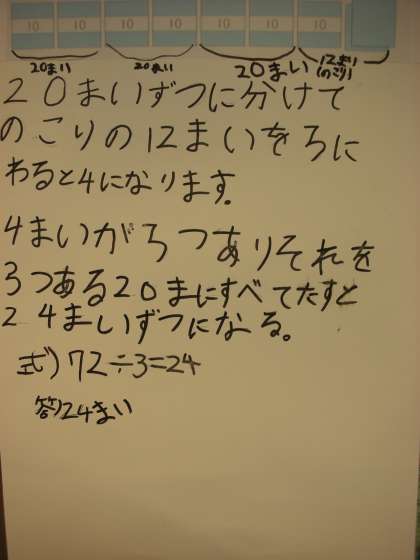 10 10 10 10 10 10 10
20まい 20まい 20まい 12まい
(のこり)
20まいずつに分けて
のこりの12まいを3に
わると4になります。
4まいが3つありそれを
3つある20まにすべてたすと
24まいずつになる。
式)72÷3=24
答)24まい